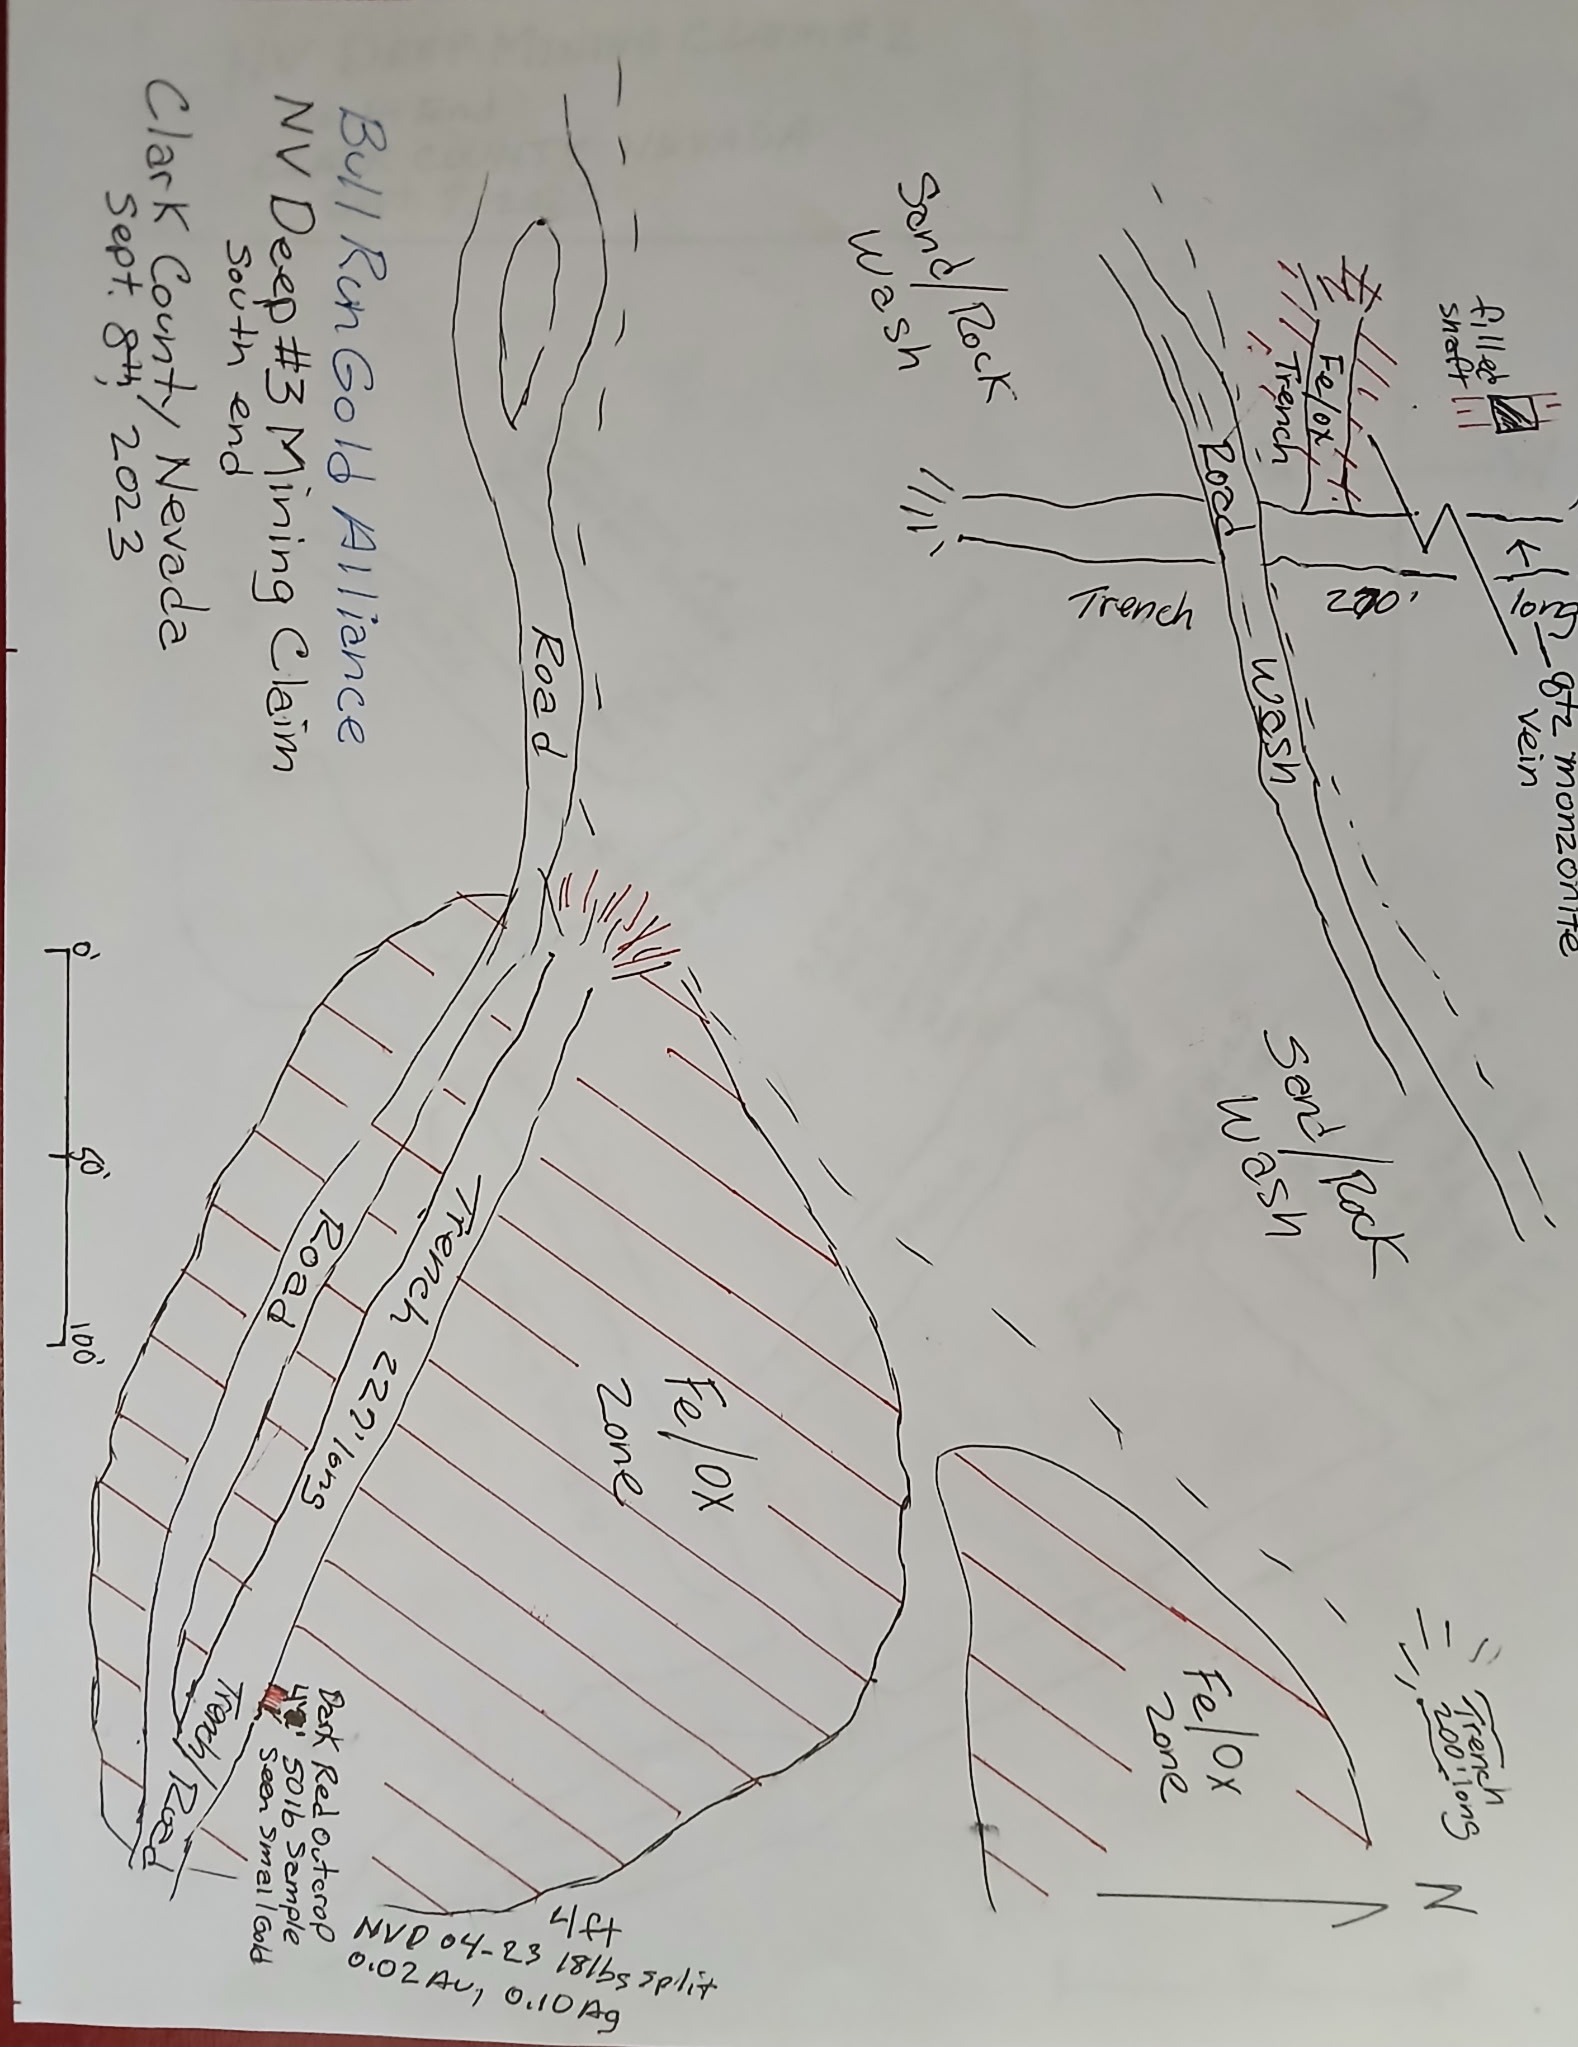 filled
shaft
Fe/ox
Trench
long
qtz monzonite
vein
Road
Wash
Trench
Sand/Rock
Wash
Sand/Rock
Wash
Trench
200' long
N
Fe/OX
Zone
Fe/OX
Zone
Road
Trench 222' long
Road
Trench/Road
Dark Red Outcrop
50 lb Sample
seen small Gold
4/ft
NVD 04-23 18lbs split
0.02 Au, 0.10 Ag
Bull Run Gold Alliance
NV Deep #3 Mining Claim
South end
Clark County Nevada
Sept. 8th, 2023
0' 50' 100'